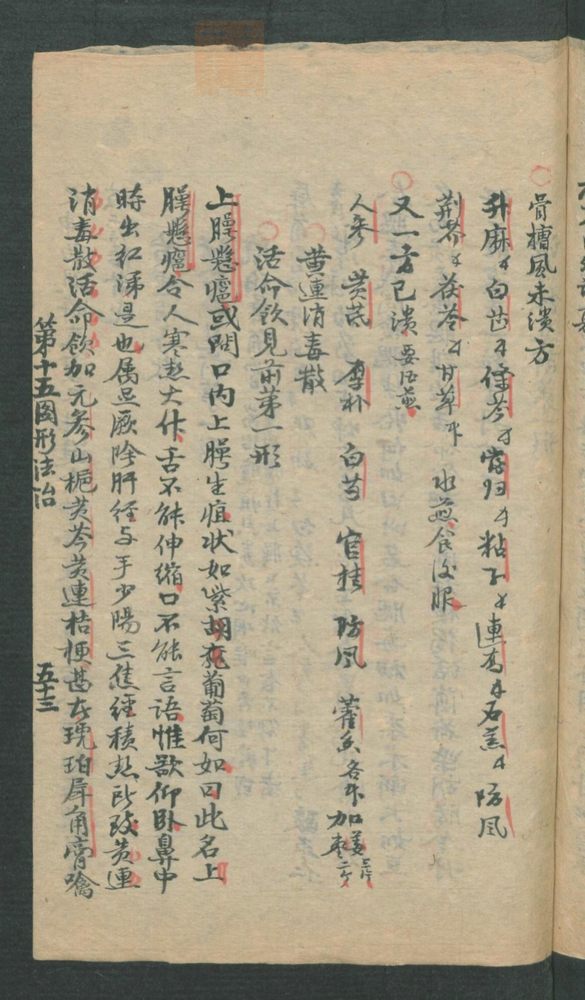 骨槽風未潰方
升麻 白芷 條芩 當归 粘子 連翹 石羔 防風
荆芥 茯苓 甘草 水煎食後服
又一方已潰要活煎
人參 黄芪 厚朴 白芍 官桂 防風 藿香各 加姜三片 枣二个
黄連消毒散
活命飲見前第一形
上腭懸癰或問口内上腭生疽状如紫胡葡萄何如曰此名上
腭懸癰令人寒热大作舌不能伸縮口不能言語惟欲仰卧鼻中
時出紅涕是也属足厥陰肝經与手少陽三焦經積热所致黄連
消毒散活命飲加元参山梔黄芩黄連桔梗甚者琥珀犀角膏噙
第十五图形法治 五十三